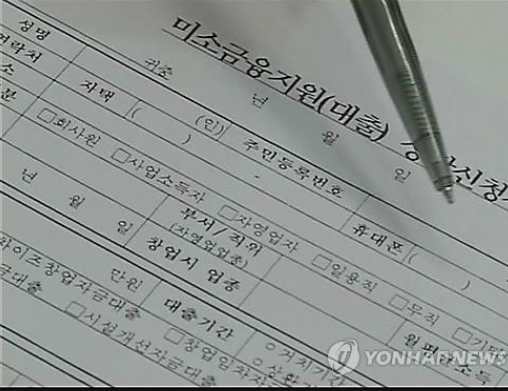 미소금융지원(대출) 신청
귀중 년 월 일
성명 (인) 주민등록번호 -
연락처 자택 ( ) 휴대폰 (
소
분 □회사원 □사업소득자 □자영업자 □일용직 □무직 □기타
년 월 일 부서/직위 월평균소득
(자영업업종)
창업시 업종
만원 대출기간 ○거치기간
창업자금대출 ○상환기
금대출 □시설개선자금대출 □창업임차자금
YONHAP NEWS